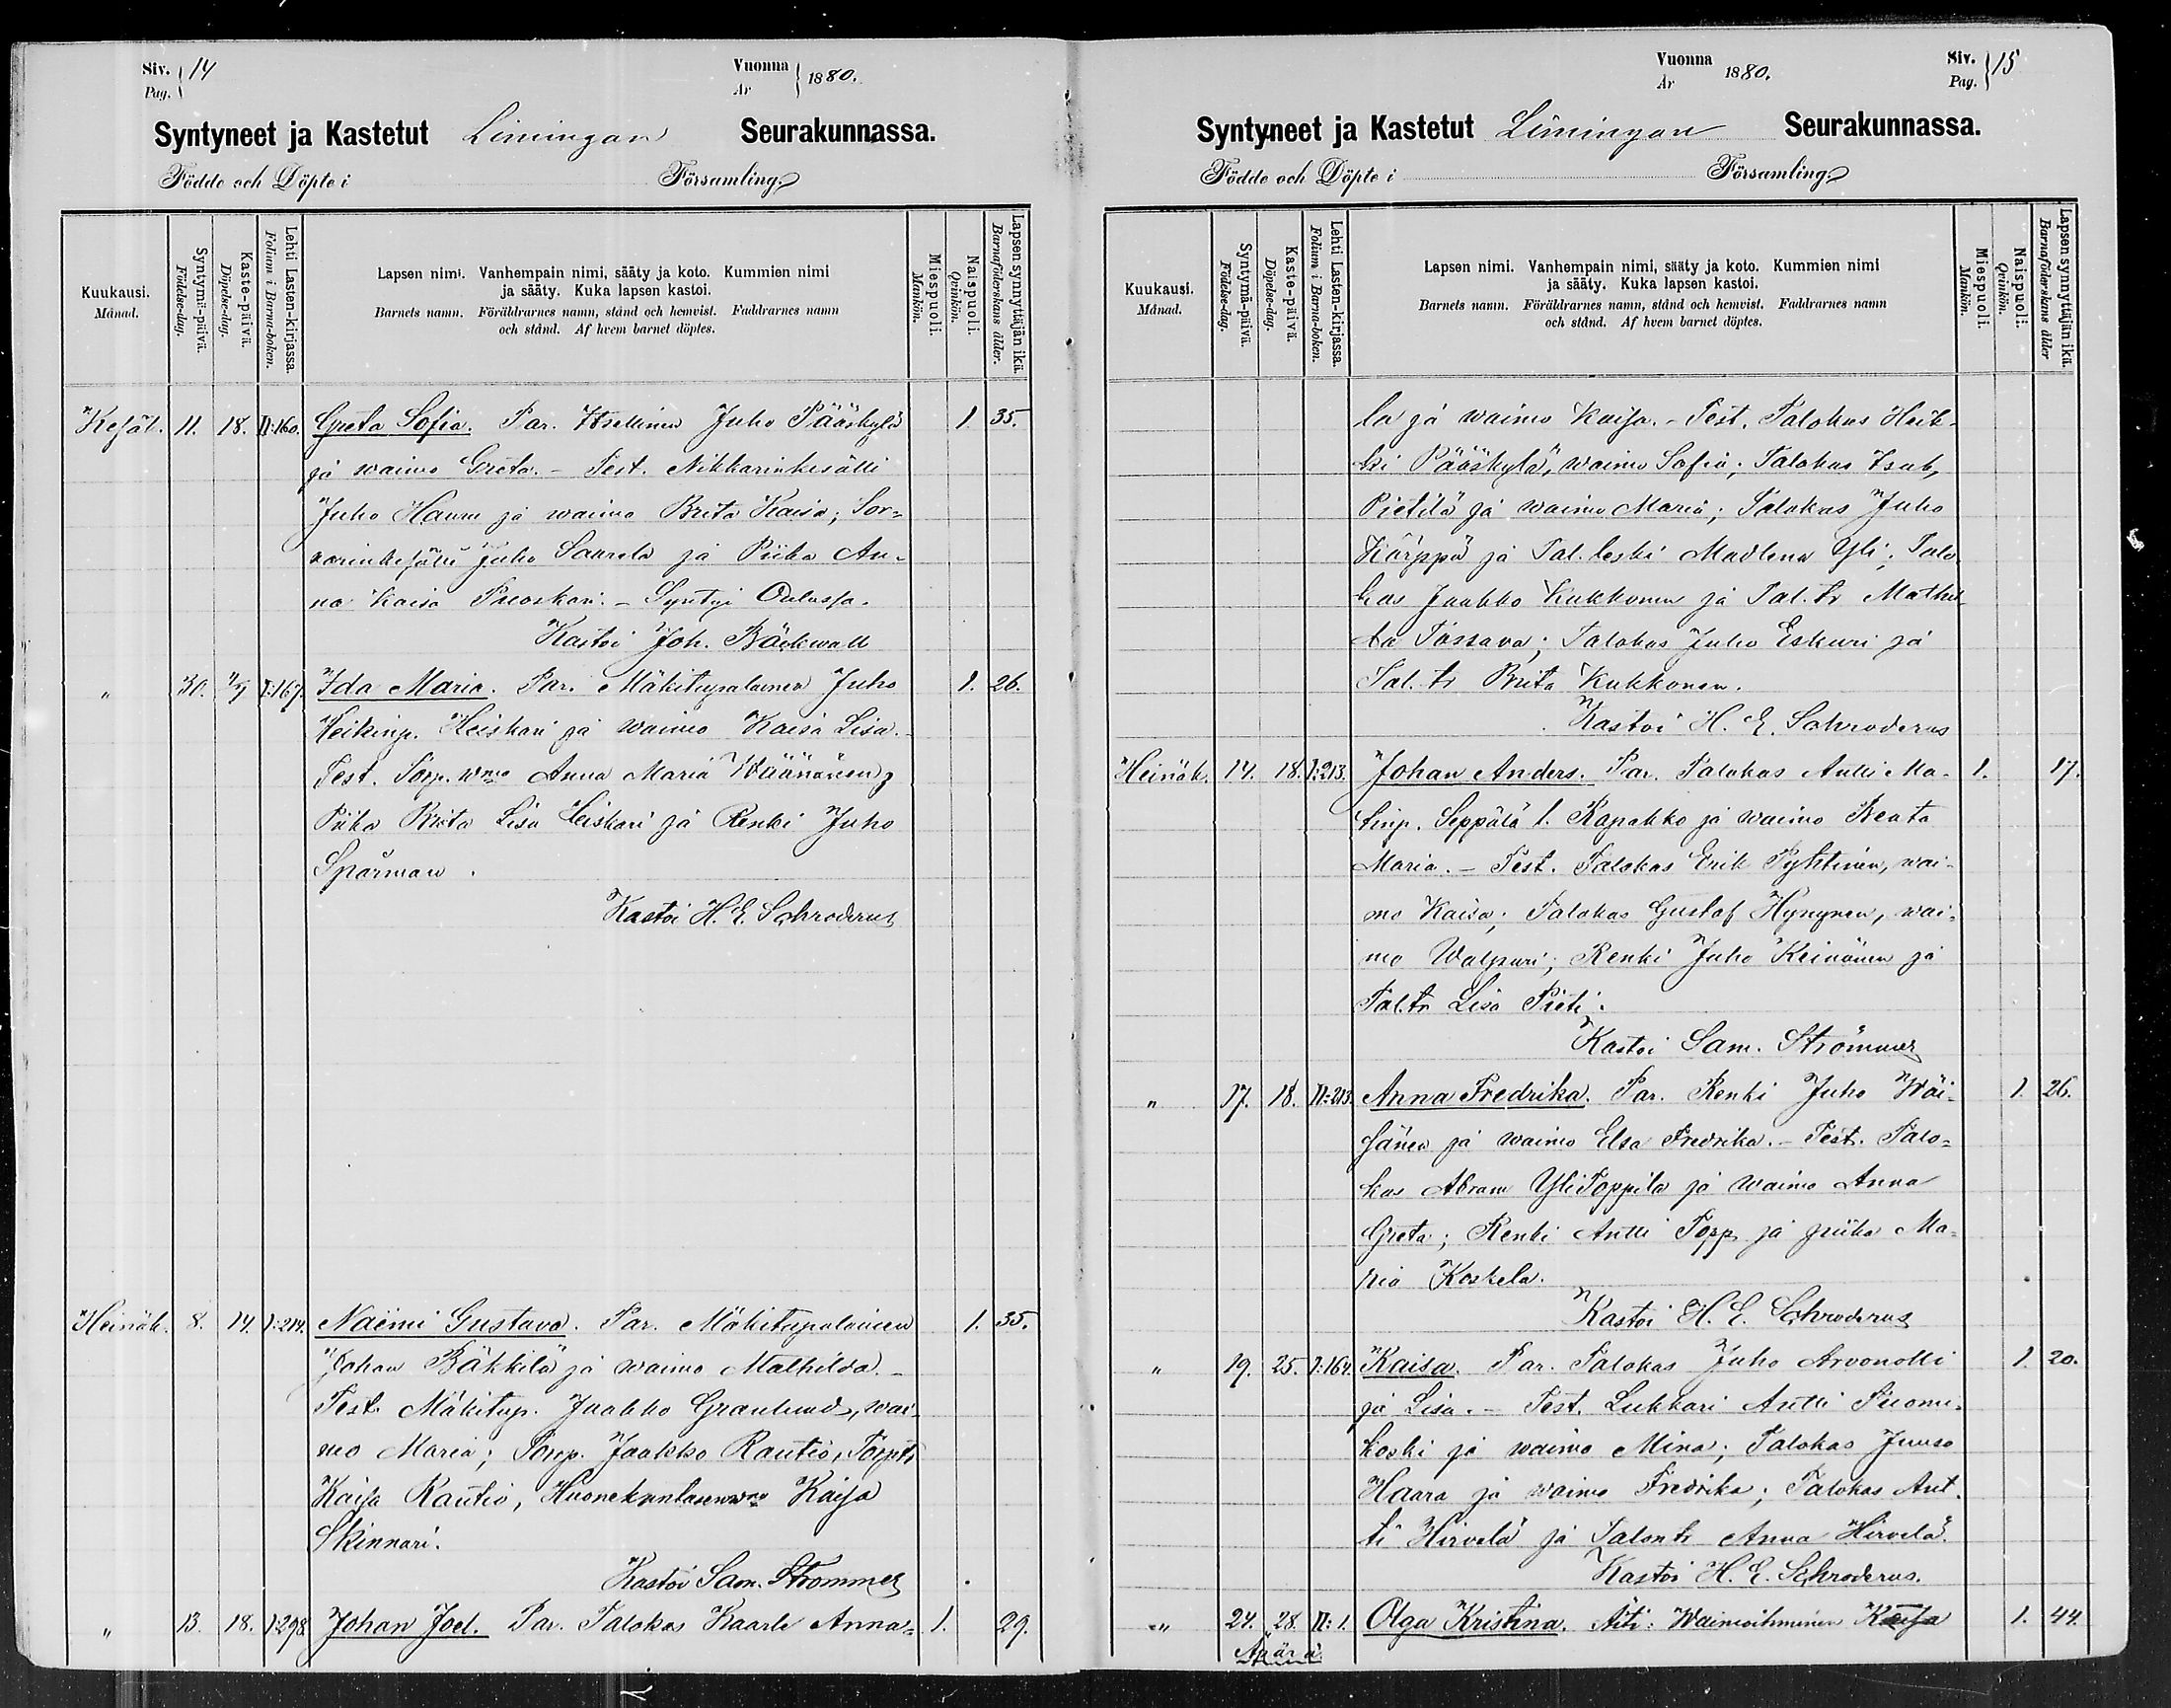 Siv. 14
Pag.
Vuonna 1880.
År
Syntyneet ja Kastetut Limingan Seurakunnassa.
Födde och Döpte i Församling.
Kuukausi.
Månad.
Syntymä-päivä.
Födelse-dag.
Kaste-päivä.
Döpelse-dag.
Lehti Lasten-kirjassa.
Folium i Barna-boken.
Lapsen nimi. Vanhempain nimi, sääty ja koto. Kummien nimi
ja sääty. Kuka lapsen kastoi.
Barnets namn. Föräldrarnes namn, stånd och hemvist. Faddrarnes namn
och stånd. Af hvem barnet döptes.
Miespuoli.
Mankön.
Naispuoli.
Qvinkön.
Lapsen synnyttäjän ikä.
Barnaföderskans ålder.
Kesäk. 11. 18. II:160. Greta Sofia. Par. Itsellinen Juho Pääskylä 1 35.
ja waimo Greta. - Test. Nikkarinkesälli
Juho Hannu ja waimo Brita Kaisa; Sor-
varinkesälli Juho Saarela ja Piika An-
na Kaisa . - Syntyi Oulussa.
Kastoi Joh. Bäckwall
" 30. I:167. Ida Maria. Par. Mäkitupalainen Juho 1. 26.
Heikinp. Heiskari ja waimo Kaisa Lisa.
Test. Torp. wmo Anna Maria Wäänänen,
Piika Brita Lisa Heiskari ja Renki Juho
Spårman.
Kastoi H. E. Schroderus
Heinäk. 8. 14. I:214. Naëmi Gustava. Par. Mäkitupalainen 1. 35.
Johan Bäkkilä ja waimo Mathilda. -
Test. Mäkitup. Jaakko Granlund, wai-
mo Maria; Torp. Jaakko Rautio, Torp.tr
Kaisa Rautio, Huonekuntasen wmo Kaisa
Skinnari.
Kastoi Sam. Strömmer
" 13. 18. I:298. Johan Joel. Par. Talokas Kaarle Anna- 1. 29.
Vuonna 1880.
År
Siv. 15
Pag.
Syntyneet ja Kastetut Limingan Seurakunnassa.
Födde och Döpte i Församling.
Kuukausi.
Månad.
Syntymä-päivä.
Födelse-dag.
Kaste-päivä.
Döpelse-dag.
Lehti Lasten-kirjassa.
Folium i Barna-boken.
Lapsen nimi. Vanhempain nimi, sääty ja koto. Kummien nimi
ja sääty. Kuka lapsen kastoi.
Barnets namn. Föräldrarnes namn, stånd och hemvist. Faddrarnes namn
och stånd. Af hvem barnet döptes.
Miespuoli.
Mankön.
Naispuoli.
Qvinkön.
Lapsen synnyttäjän ikä.
Barnaföderskans ålder
la ja waimo Kaisa. - Test. Talokas Heik-
ki Pääskylä, waimo Sofia; Talokas Isak
Pietilä ja waimo Maria; Talokas Juho
Kärppä ja Tal. leski Madlena Yli; Talo-
kas Jaakko Kukkonen ja Tal.tr Mathil-
da Tassava; Talokas Juho Eskuri ja
Tal. tr Brita Kukkonen.
Kastoi H. E. Schroderus
Heinäk. 14. 18. I:213. Johan Anders. Par. Talokas Antti Ma- 1. 17.
tinp. Seppälä l. Rapakko ja waimo Beata
Maria. - Test. Talokas Erik Pyhtinen, wai-
mo Kaisa; Talokas Gustaf Hynynen, wai-
mo Walpuri; Renki Juho Keinänen ja
Tal.tr Lisa Pieti.
Kastoi Sam. Strömmer
" 17. 18. II:213. Anna Fredrika. Par. Renki Juho Wäi- 1. 26.
sänen ja waimo Elsa Fredrika. - Test. Talo-
kas Abram YliToppila ja waimo Anna
Greta; Renki Antti Topp. ja piika Ma-
ria Koskela.
Kastoi H. E. Schroderus
" 19. 25. I:164. Kaisa. Par. Talokas Juho Arvonolli 1. 20.
ja Lisa. - Test. Lukkari Antti Suomi-
koski ja waimo Mina; Talokas Juuso
Haara ja waimo Fredrika; Talokas Ant-
ti Hirvelä ja Talon tr Anna Hirvelä.
Kastoi H. E. Schroderus.
" 24. 28. II:1. Olga Kristina. Äiti: Waimoihminen Kaisa 1. 44.
Äpärä.